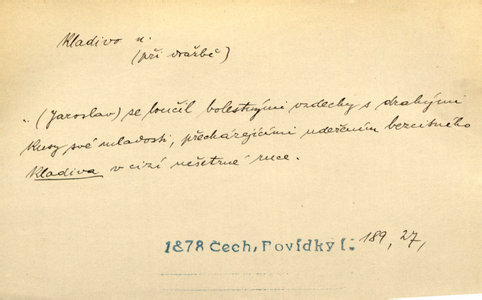 Kladivo n.
(při dražbě)
„(Jaroslav) se loučil bolestnými vzdechy s drahými
kusy své mladosti, přecházejícími udeřením bezcitného
kladiva v cizí nešetrné ruce.
1878 Čech, Povídky I. 189, 27,